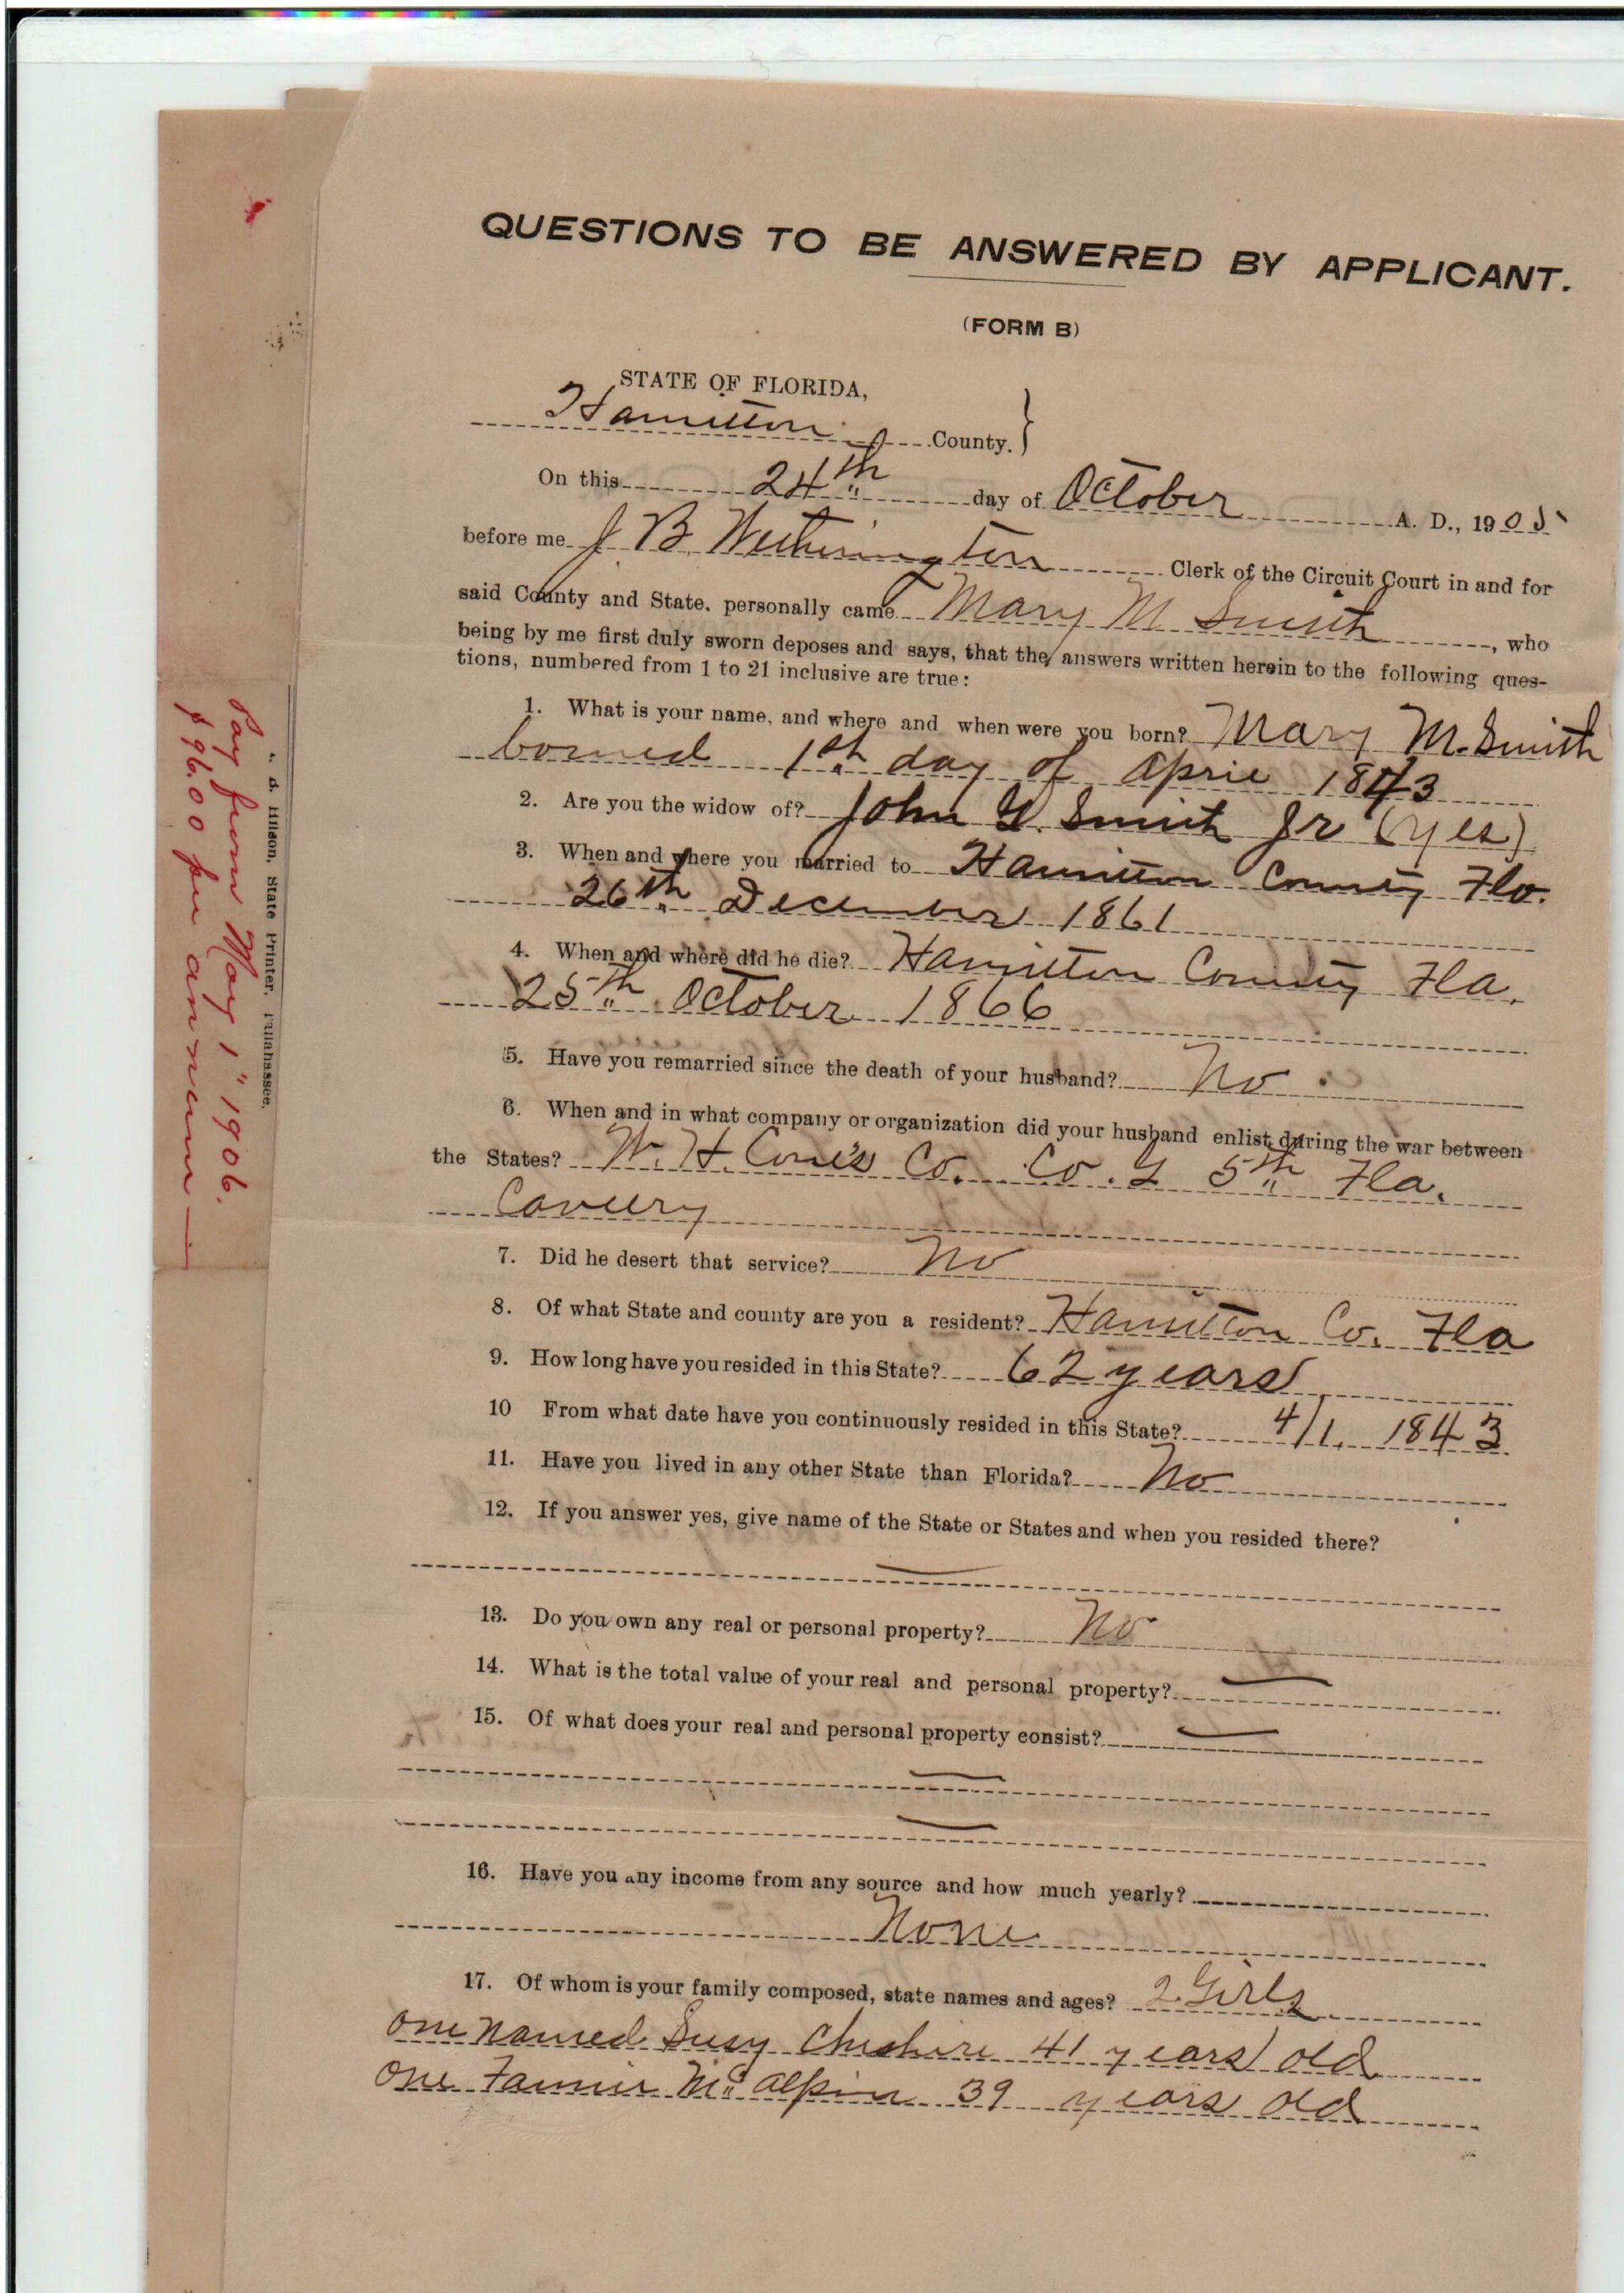 QUESTIONS TO BE ANSWERED BY APPLICANT.
(FORM B)
STATE OF FLORIDA,
Hamilton County.}
On this 24th day of October A. D., 1905
before me J B Wetherington Clerk of the Circuit Court in and for
said County and State. personally came Mary M Smith, who
being by me first duly sworn deposes and says, that the answers written herein to the following ques-
tions, numbered from 1 to 21 inclusive are true:
1. What is your name, and where and when were you born? Mary M. Smith
borned 1th day of April 1843
2. Are you the widow of? John G. Smith Jr (yes)
3. When and where you married to Hamilton County Fla.
26th December 1861
4. When and where did he die? Hamilton County Fla.
25th October 1866
5. Have you remarried since the death of your husband? No
6. When and in what company or organization did your husband enlist during the war between
the States? W. H. Cone's Co. Co. 5th Fla.
Cavelry
7. Did he desert that service? No
8. Of what State and county are you a resident? Hamilton Co. Fla
9. How long have you resided in this State? 62 years
10 From what date have you continuously resided in this State? 4/1. 1843
11. Have you lived in any other State than Florida? No
12. If you answer yes, give name of the State or States and when you resided there?
—
13. Do you own any real or personal property? No
14. What is the total value of your real and personal property? —
15. Of what does your real and personal property consist? —
—
—
16. Have you any income from any source and how much yearly?
None
17. Of whom is your family composed, state names and ages? 2 Girls
one named Susy Cheshire 41 years old
one Fannie McAlpin 39 years old
Hilson, State Printer, Tallahassee.
Pay from May 1" 1906.
$96.00 per annum —